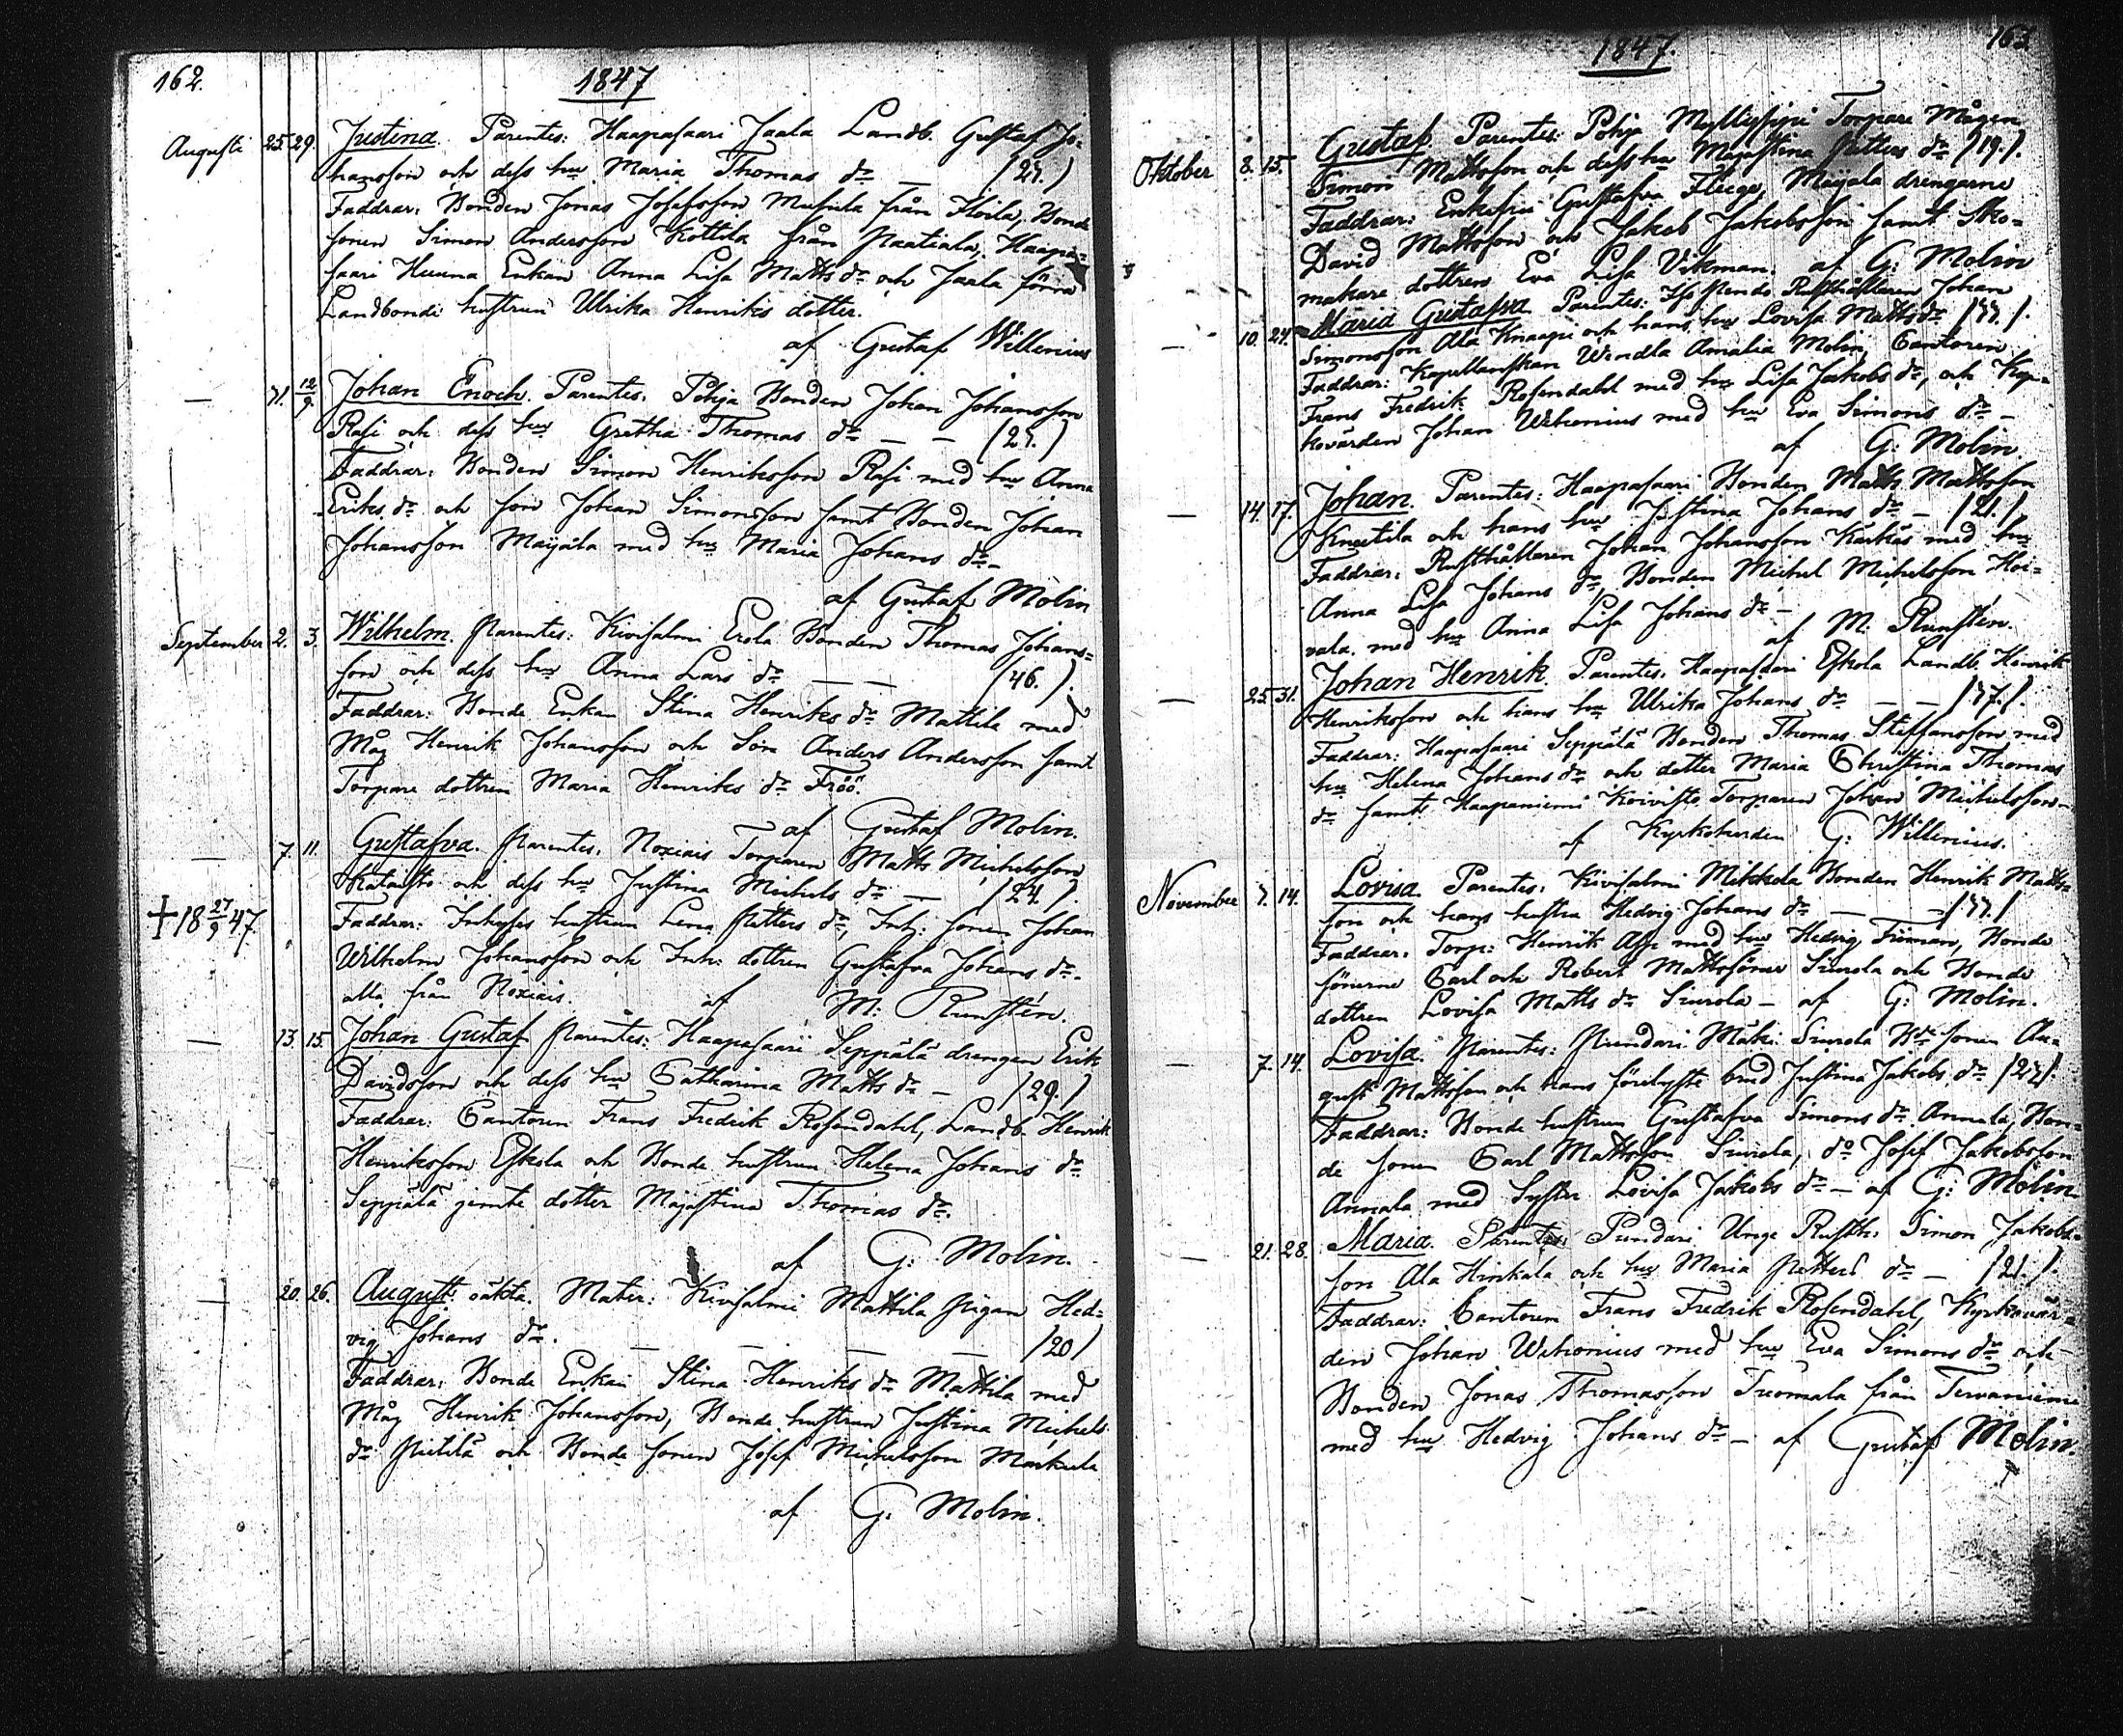 162.
1847
Augusti 25. 29. Justina. Parentes: Haapasaari Jaala Landb. Gustaf Jo-
hansson och dess hu Maria Thomas dr —
Faddrar: Bonden Jonas Josefsson från Bonde
sonen Simon Andersson Kottila från Raatiala, Haapa-
saari Enkan Anna Lisa Matts dr och Jaala förra
Landbonde hustrun Ulrika Henriks dotter.
af Gustaf Willenius
— 31. 12/9. Johan Enoch. Parentes. Pohja Bonden Johan Johansson
Rasi och dess hu Gretha Thomas dr — —
Faddrar: Bonden Simon Henriksson Rasi med hu Anna
Eriks dr och son Johan Simonsson samt Bonden Johan
Johansson Maijala med hu Maria Johans dr —
af Gustaf Molin
September 2. 3. Wilhelm. Parentes: Kivisalmi Erola Bonden Thomas Johans-
son och dess hu Anna Lars dr — — (46.).
Faddrar: Bonde Enkan Stina Henriks dr Mattila med
Måg Henrik Johansson och Son Anders Andersson samt
Torpare dottren Maria Henriks dr Fröö.
af Gustaf Molin.
— 7. 11. Gustafva. Parentes. Torparen Matts Michelsson
och dess hu Justina Michels dr — (24.).
+ 18 27/9 47. Faddrar: Inhyses hustrun Lena Petters dr, Inh: sonen Johan
Wilhelm Johansson och Inh: dottren Gustafva Johans dr.
alla från af M: Runstén.
— 13. 15. Johan Gustaf Parentes: Haapasaari Seppälä drengen Erik
Davidsson och dess hu Catharina Matts dr — (29.)
Faddrar: Cantoren Frans Fredrik Rosendahl, Landb. Henrik
Henriksson Eskola och Bonde hustrun Helena Johans dr
Seppälä jemte dotter Majastina Thomas dr.
af G: Molin.
— 20. 26. August oäkta. Mater: Kivisalmi Mattila pigan Hed-
vig Johans dr. — — — — (20)
Faddrar: Bonde Enkan Stina Henriks dr Mattila med
Måg Henrik Johansson, Bonde hustrun Justina Michels
dr och Bonde sonen Josef Michelsson Markula
af G. Molin.
163.
1847.
Oktober 8. 15. Gustaf. Parentes: Pohja Torpare Mågen
Simon Mattsson och dess hu Majastina Petters dr (19.).
Faddrar: Gustafva Maijala drengarne
David Mattsson och Jakob Jakobsson samt Sko-
makare dottren Eva Lisa Vikman. af G: Molin
— 10. 24. Maria Gustafva Parentes: Rusthållaren Johan
Simonsson Ala Knaapi och hans hu Lovisa Matts dr
Faddrar: Kapellanskan Wendla Amalia Molin, Cantoren
Frans Fredrik Rosendahl med hu Lisa Jakobs dr, och Kyr-
kovärden Johan Wehonius med hu Eva Simons dr —
af G: Molin.
— 14. 17. Johan. Parentes: Haapasaari Bonden Matts Mattsson
Knuutila och hans hu Justina Johans dr — (21.).
Faddrar: Rusthållaren Johan Johansson Kärkäs med hu
Anna Lisa Johans dr, Bonden Michel Michelsson Hoi-
vala. med hu Anna Lisa Johans dr —
af M. Runstén.
— 25. 31. Johan Henrik. Parentes. Haapasaari Eskola Landb. Henrik
Henriksson och hans hu Ulrika Johans dr — —
Faddrar: Haapasaari Seppälä Bonden Thomas Staffansson med
hu Helena Johans dr och dotter Maria Christina Thomas
dr samt Haapaniemi Koivisto Torparen Johan Michelsson —
af Kyrkoherden G: Willenius.
November 7. 14. Lovisa Parentes: Kivisalmi Mikkela Bonden Henrik Matts-
son och hans hustru Hedvig Johans dr —
Faddrar. Torp: Henrik med hu Hedvig Bonde
sönerne Carl och Robert Mattssöner Siurola och Bonde
dottren Lovisa Matts dr Siurola — af G: Molin.
— 7. 14. Lovisa. Parentes: Pundari Mäki Siurola Bde sonen Au-
gust Mattsson och hans Justina Jakobs dr
Faddrar: Bonde hustrun Gustafva Simons dr Annala, Bon-
de sonen Carl Mattsson Siurola, do Josef Jakobsson
Annala med Syster Lovisa Jakobs dr — af G: Molin.
— 21. 28. Maria. Parentes: Pundari Unge Rusth. Simon Jakobs-
son Ala Hinkala och hu Maria Petters dr — (21.).
Faddrar: Cantoren Frans Fredrik Rosendahl, Kyrkovär-
den Johan Wehonius med hu Eva Simons dr och
Bonden Jonas Thomasson Tuomala från Tervaniemi
med hu Hedvig Johans dr — af Gustaf Molin.